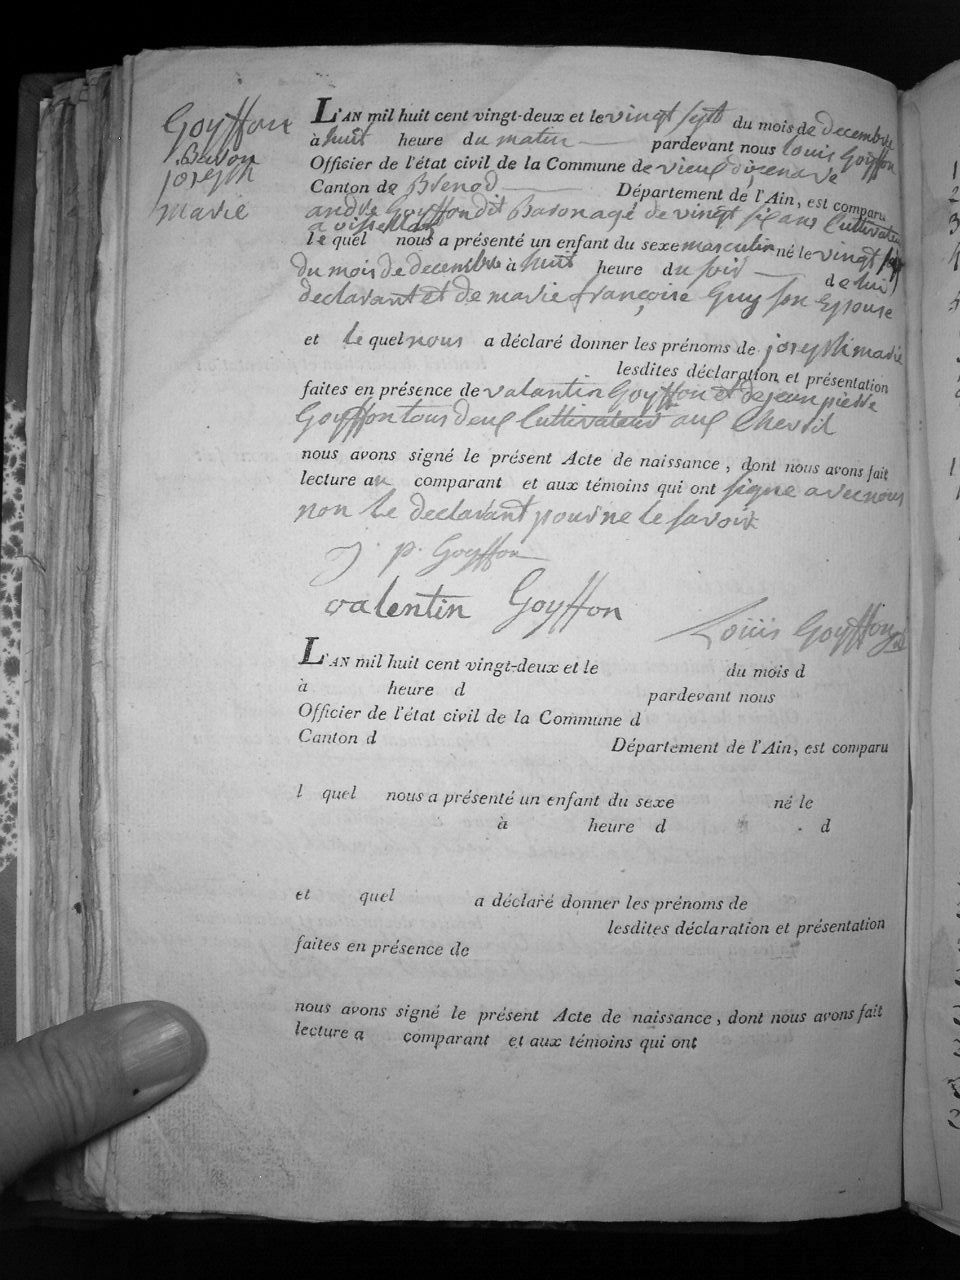 Goyffon
Baron
joseph
marie
L'AN mil huit cent vingt-deux et le vingt sept du mois de decembre
à huit heure du matin pardevant nous Louis Goyffon
Officier de l'état civil de la Commune de vieux d'izenave
Canton de Brenod Département de l'Ain, est comparu
andre Goyffon dit Baron agé de vingt six ans Cultivateur
a
le quel nous a présenté un enfant du sexe masculin né le vingt
du mois de decembre à huit heure du soir de lui
declarant et de marie françoise Guy son Epouse
et le quel nous a déclaré donner les prénoms de joseph marie
lesdites déclaration et présentation
faites en présence de valantin Goyffon et de jean pierre
Goyffon tous deux Cultivateur aux
nous avons signé le présent Acte de naissance, dont nous avons fait
lecture au comparant et aux témoins qui ont signe avec nous
non le declarant pour ne le savoir
J. p. Goyffon
valentin Goyffon
Louis Goyffon
L'AN mil huit cent vingt-deux et le du mois d
à heure d pardevant nous
Officier de l'état civil de la Commune d
Canton d Département de l'Ain, est comparu
l quel nous a présenté un enfant du sexe né le
à heure d d
et quel a déclaré donner les prénoms de
lesdites déclaration et présentation
faites en présence de
nous avons signé le présent Acte de naissance, dont nous avons fait
lecture a comparant et aux témoins qui ont